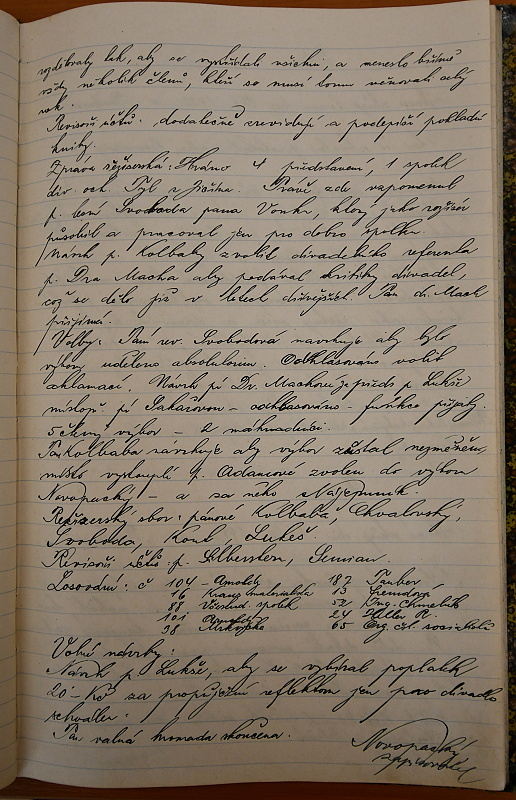 rozdebraly tak, aby se vystřídali všichni, a neneslo břímě
vždy několik členů, kteří se musí tomu věnovati celý
rok.
Revisoři účtů: dodatečně zrevidují a podepíší pokladní
knihy.
Zpráva režiserská: Hráno 4 představení, 1 spolek
div. och. Tyl z Jičína. Právě zde vzpomenul
p. Svoboda pana Vonku, který jako režisér
působil a pracoval jen pro dobro spolku.
Návrh p. Kolbaby zvoliti divadelního referenta
p. Dra Macha aby podával kritiky divadel,
což se dělo již v letech dřívějších. Pan dr. Mach
přijímá.
Volby: Paní rev. Svobodová navrhuje aby bylo
výboru uděleno absolutorium. Odhlasováno voliti
aklamací. Návrh pí Dr. Machové za předs. p. Lukše
místopř. pí – odhlasováno – funkce přijaty.
5 členný výbor – 2 náhradníci.
Pan Kolbaba navrhuje aby výbor zůstal nezměněn,
místo vystouplé Adamcové zvolen do výboru
Novopacký – a za něho
Režiserský sbor: pánové Kolbaba, Chvalovský,
Svoboda, Lukeš.
Revisoři účtů: p. Silberstern,
Losování: č. 104 – 187 Tauber
16 13
88 spolek 52 Ing. Chmelík
101 24
38 65 Org. čsl.
Volné návrhy:
Návrh p. Lukše, aby se vybíral poplatek
20.– Kč za propůjčení reflektorů jen pro divadlo
schválen.
Tím valná hromada skončena.
Novopacký
zapisovatel